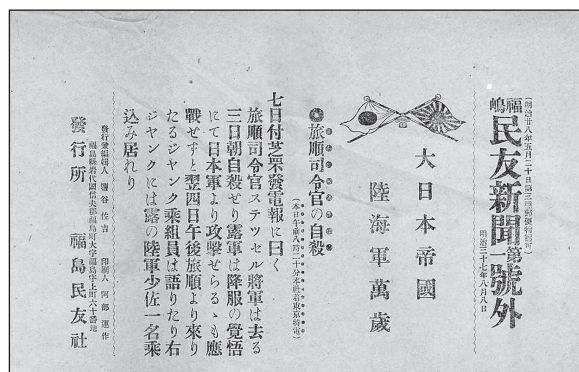 (明治廿八年五月二十日第三種郵便物認可)
福嶋民友新聞第一號外
明治三十七年八月八日
大日本帝國
陸海軍萬歲
◎旅順司令官の自殺
(本日午前八時二十分本社着東京特電)
七日付芝罘發電報に曰く
旅順司令官ステツセル將軍は去る
三日朝自殺せり露軍は降服の覺悟
にて日本軍より攻擊せらるゝも應
戰せずと翌四日午後旅順より來り
たるジヤンク乘組員は語りたり右
ジヤンクには露の陸軍少佐一名乘
込み居れり
發行兼編輯人 鹽谷佐吉 印刷人 阿部運作
福島縣岩代國信夫郡福島町大字福島字上町六十番地
發行所 福島民友社